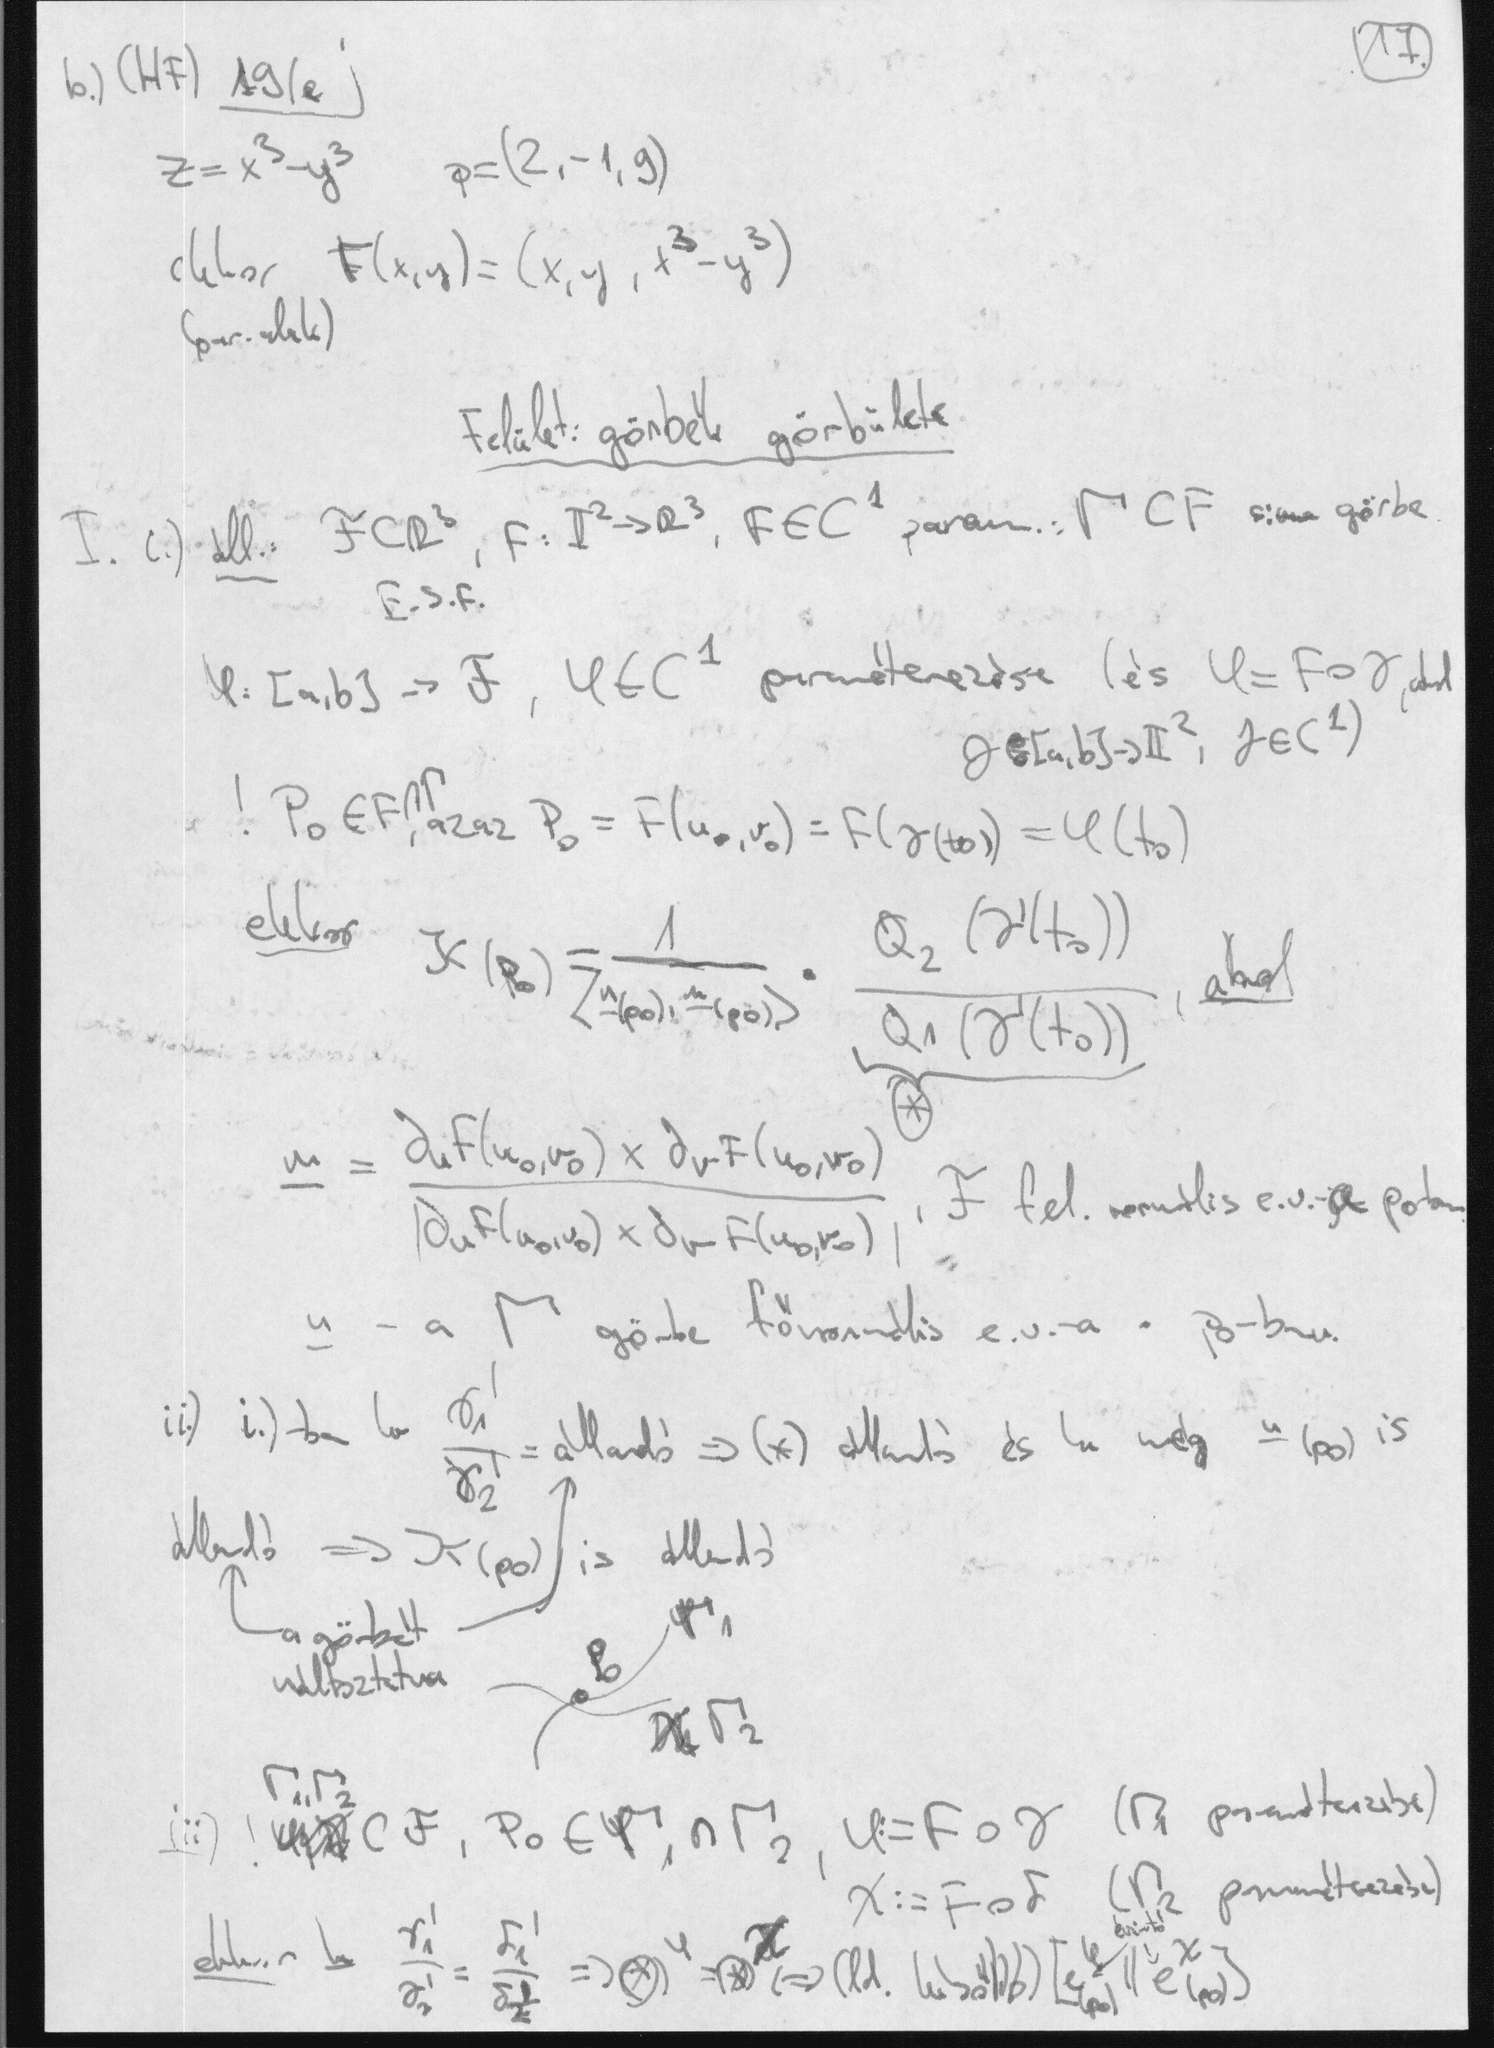 17.
b.) (HF) 19/e
z = x³ - y³   p = (2, -1, 9)
ekkor F(x,y) = (x, y, x³ - y³)
(par. alak)
Felület: görbék görbülete
I. i.) áll.: ℱ⊂ℝ³, F: 𝕀²→ℝ³, F∈C¹ param.: Γ⊂F sima görbe
E.S.F.
φ: [a,b] → ℱ, φ∈C¹ paraméterezése (és φ = F∘γ, ahol
γ: [a,b]→𝕀², γ∈C¹)
! P₀∈F∩Γ, azaz P₀ = F(u₀,v₀) = F(γ(t₀)) = φ(t₀)
ekkor 𝒦(p₀) = 1/⟨n(p₀), m(p₀)⟩ · Q₂(γ'(t₀))/Q₁(γ'(t₀)), ahol
⊛
m = ∂uF(u₀,v₀) × ∂vF(u₀,v₀) / |∂uF(u₀,v₀) × ∂vF(u₀,v₀)|, ℱ fel. normális e.v.-a p₀-ban
n - a Γ görbe főnormális e.v.-a p₀-ban.
ii.) i.)-ban ha γ₁'/γ₂' = állandó ⇒ (*) állandó és ha még n(p₀) is
állandó ⇒ 𝒦(p₀) is állandó
a görbét
változtatva
P₀
Γ₁
Γ₂
Γ₁, Γ₂
iii) ! ⊂ ℱ, P₀ ∈ Γ₁ ∩ Γ₂, φ := F∘γ (Γ₁ paraméterezése)
χ := F∘δ (Γ₂ paraméterezése)
érintő
ekkor ha γ₁'/γ₂' = δ₁'/δ₂' ⇒ ⊛^φ = ⊛^χ (⇒ (ld. később) [e^φ(p₀) ∥ e^χ(p₀)]